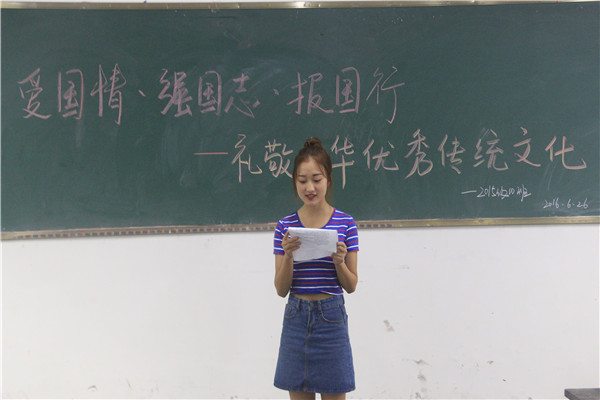 爱国情、强国志、报国行
—礼敬 华优秀传统文化
—2015级10班
2016.6.26